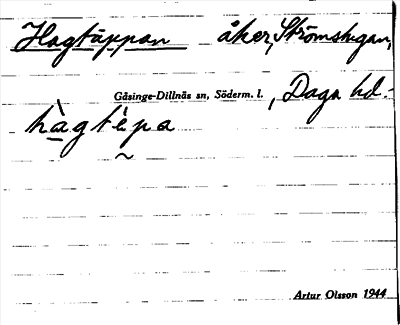 Hagtäppan åker, Strömstugan,
Gåsinge-Dillnäs sn, Söderm. l., Daga hd.
hàgtèpa
Artur Olsson 1944